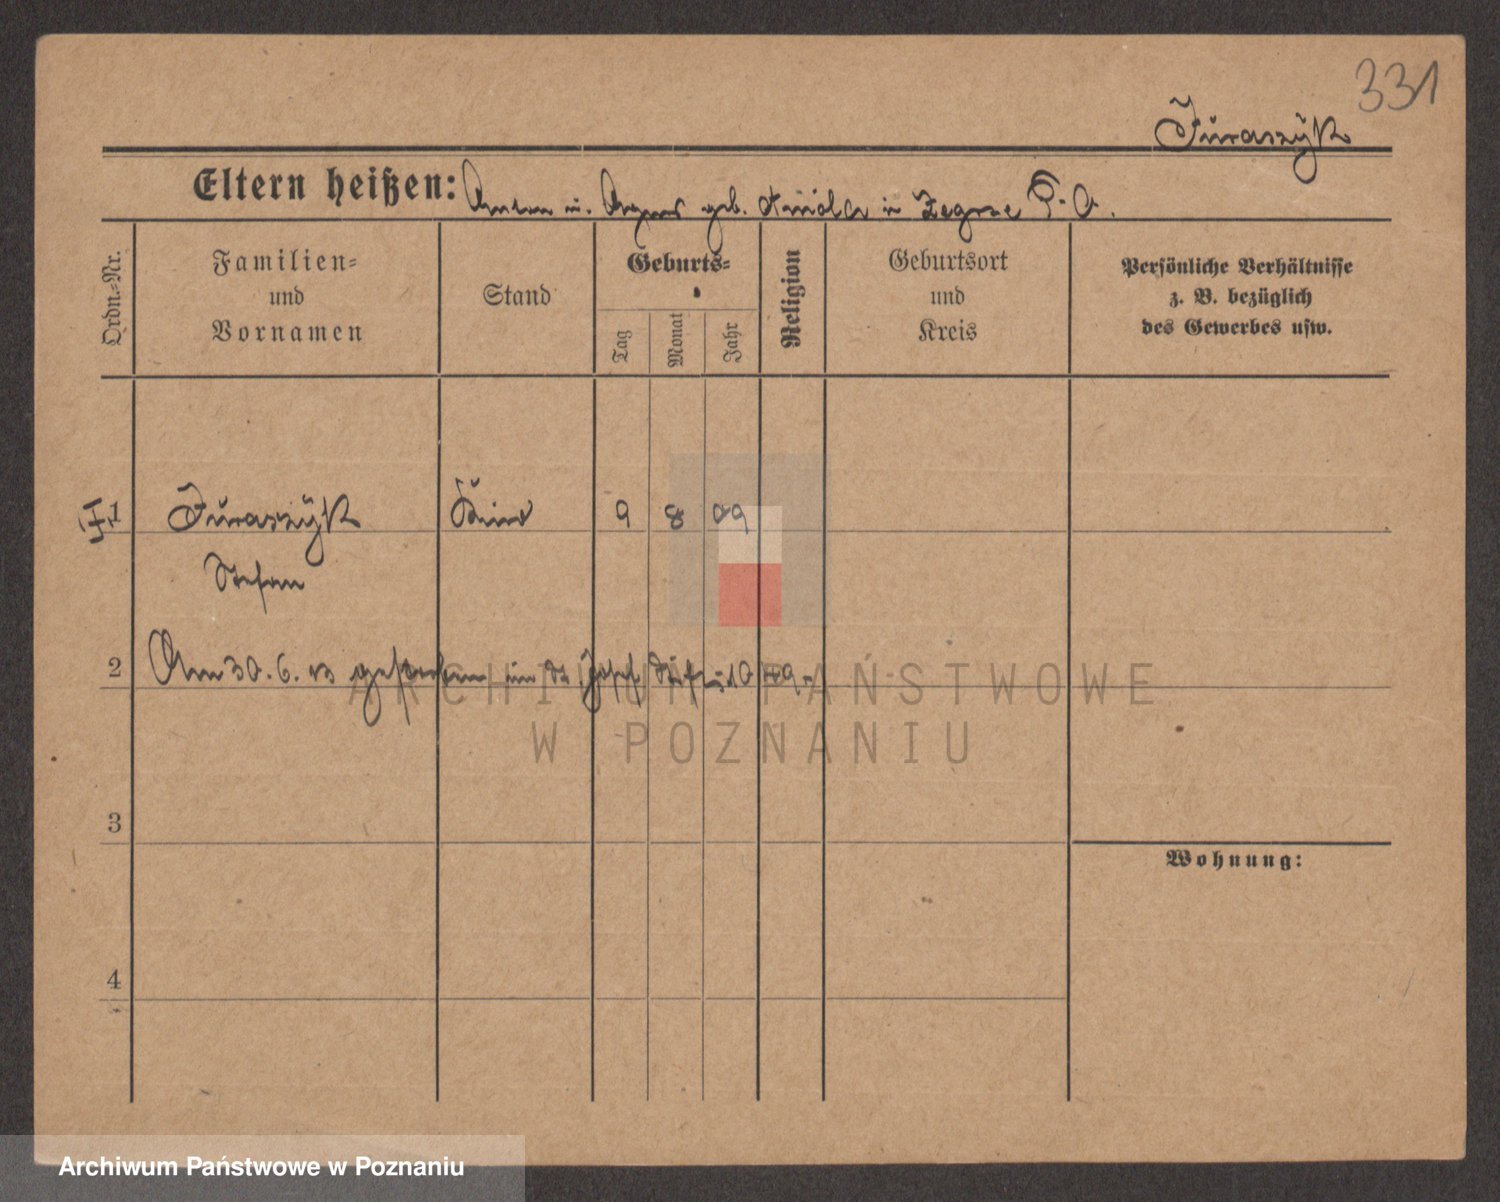 331
Juraszyk
Eltern heißen: Anton u. Agnes geb. in Zegrze P. O.
Ordn.-Nr.
Familien-
und
Vornamen
Stand
Geburts-
Tag
Monat
Jahr
Religion
Geburtsort
und
Kreis
Persönliche Verhältnisse
z. B. bezüglich
des Gewerbes usw.
1 Juraszyk Kind 9 8 09
Stefan
2 Am 30. 6. 13 gestorben im St. Josef Stift
3
4
Wohnung:
ARCHIWUM PAŃSTWOWE
W POZNANIU
Archiwum Państwowe w Poznaniu